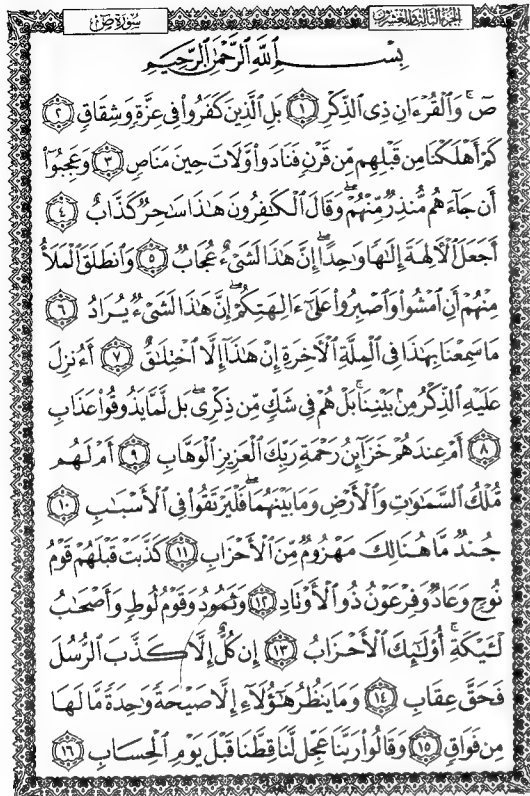 الجزء الثالث والعشرون
سورة ص
بسم الله الرحمن الرحيم
صٓ ۚ وَٱلْقُرْءَانِ ذِى ٱلذِّكْرِ ۝١ بَلِ ٱلَّذِينَ كَفَرُوا۟ فِى عِزَّةٍ وَشِقَاقٍ ۝٢
كَمْ أَهْلَكْنَا مِن قَبْلِهِم مِّن قَرْنٍ فَنَادَوا۟ وَّلَاتَ حِينَ مَنَاصٍ ۝٣ وَعَجِبُوٓا۟
أَن جَآءَهُم مُّنذِرٌ مِّنْهُمْ ۖ وَقَالَ ٱلْكَـٰفِرُونَ هَـٰذَا سَـٰحِرٌ كَذَّابٌ ۝٤
أَجَعَلَ ٱلْـَٔالِهَةَ إِلَـٰهًا وَٰحِدًا ۖ إِنَّ هَـٰذَا لَشَىْءٌ عُجَابٌ ۝٥ وَٱنطَلَقَ ٱلْمَلَأُ
مِنْهُمْ أَنِ ٱمْشُوا۟ وَٱصْبِرُوا۟ عَلَىٰٓ ءَالِهَتِكُمْ ۖ إِنَّ هَـٰذَا لَشَىْءٌ يُرَادُ ۝٦
مَا سَمِعْنَا بِهَـٰذَا فِى ٱلْمِلَّةِ ٱلْـَٔاخِرَةِ إِنْ هَـٰذَآ إِلَّا ٱخْتِلَـٰقٌ ۝٧ أَءُنزِلَ
عَلَيْهِ ٱلذِّكْرُ مِنۢ بَيْنِنَا ۚ بَلْ هُمْ فِى شَكٍّ مِّن ذِكْرِى ۖ بَل لَّمَّا يَذُوقُوا۟ عَذَابِ
۝٨ أَمْ عِندَهُمْ خَزَآئِنُ رَحْمَةِ رَبِّكَ ٱلْعَزِيزِ ٱلْوَهَّابِ ۝٩ أَمْ لَهُم
مُّلْكُ ٱلسَّمَـٰوَٰتِ وَٱلْأَرْضِ وَمَا بَيْنَهُمَا ۖ فَلْيَرْتَقُوا۟ فِى ٱلْأَسْبَـٰبِ ۝١٠
جُندٌ مَّا هُنَالِكَ مَهْزُومٌ مِّنَ ٱلْأَحْزَابِ ۝١١ كَذَّبَتْ قَبْلَهُمْ قَوْمُ
نُوحٍ وَعَادٌ وَفِرْعَوْنُ ذُو ٱلْأَوْتَادِ ۝١٢ وَثَمُودُ وَقَوْمُ لُوطٍ وَأَصْحَـٰبُ
لْـَٔيْكَةِ ۚ أُو۟لَـٰٓئِكَ ٱلْأَحْزَابُ ۝١٣ إِن كُلٌّ إِلَّا كَذَّبَ ٱلرُّسُلَ
فَحَقَّ عِقَابِ ۝١٤ وَمَا يَنظُرُ هَـٰٓؤُلَآءِ إِلَّا صَيْحَةً وَٰحِدَةً مَّا لَهَا
مِن فَوَاقٍ ۝١٥ وَقَالُوا۟ رَبَّنَا عَجِّل لَّنَا قِطَّنَا قَبْلَ يَوْمِ ٱلْحِسَابِ ۝١٦